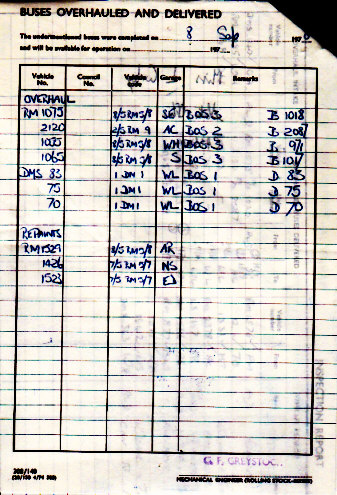 BUSES OVERHAULED AND DELIVERED
The undermentioned buses were completed on 8 Sep 197
and will be available for operation on 197
Vehicle No. Council No. Vehicle code Garage Remarks
OVERHAUL
RM 1075 8/5 RM 5/8 SG BOS 3 B 1018
2120 2/5 RM 9 AC BOS 2 B 208
1035 8/5 RM 5/8 WH BOS 3 B
1065 8/5 RM 5/8 S BOS 3 B 101
DMS 83 1 DM 1 WL BOS 1 D 83
75 1 DM 1 WL BOS 1 D 75
70 1 DM 1 WL BOS 1 D 70
REPAINTS
RM 1529 8/5 RM 5/8 AR
1426 7/5 RM 5/7 NS
1523 7/5 RM 5/7
G. F. GREYSTOC
MECHANICAL ENGINEER (ROLLING STOCK—BUSES)